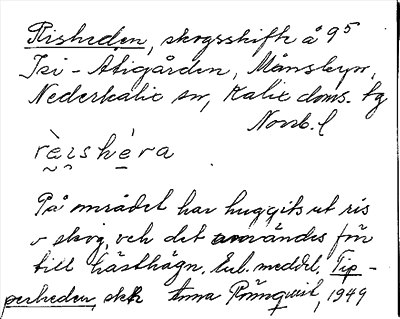 Risheden, skogsskifte å 9⁵
Isi-Atigården, Månsbyn,
Nederkalix sn, Kalix doms. tg
Norrb. l
På området har huggits ut ris
o skog, och det användes för
till hästhägn. Enl. meddel. Tip-
perheden, skk Anna Rönnquist, 1949